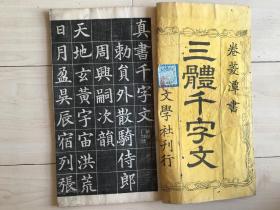 卷菱潭書
三體千字文
文學社刊行
真書千字文
勅貟外散騎侍郎
周興嗣次韻
天地玄黃宇宙洪荒
日月盈昃辰宿列張